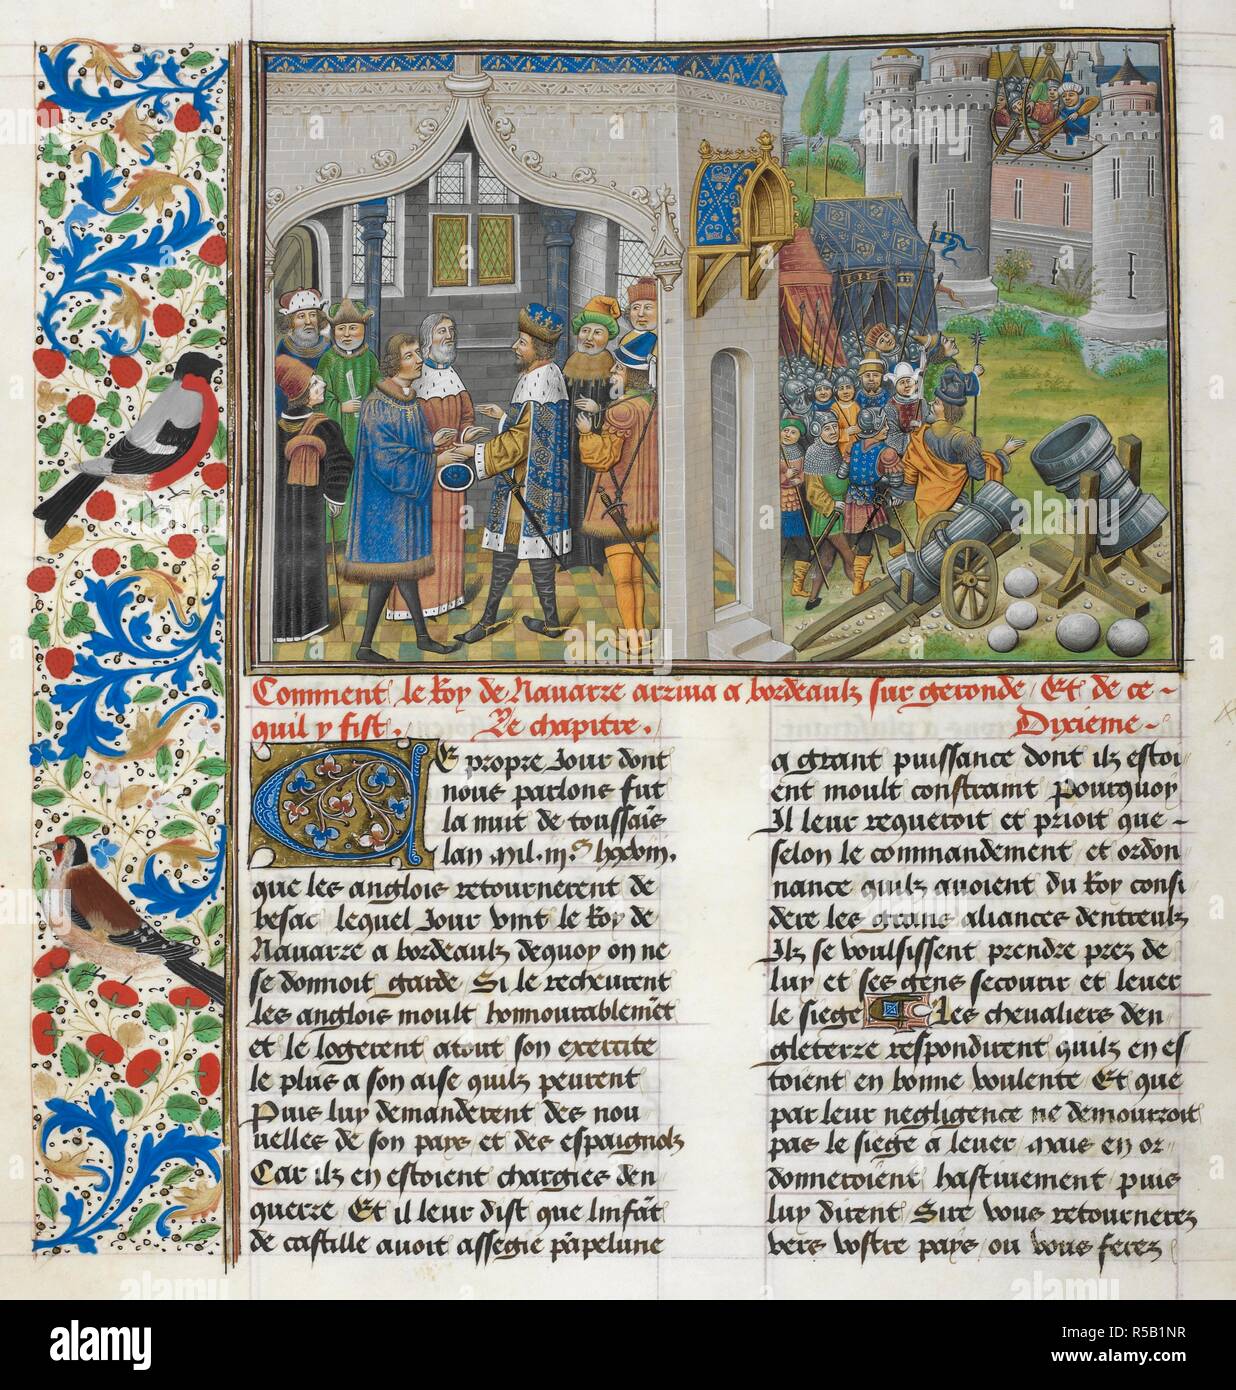 Comment le Roy de Nauarre arriua a bordeaulx sur geronde / Et de ce
quil y fist. Le chapitre. Dixieme
CE propre Jour dont
nous parlons fut
la nuit de toussaīs
que les anglois retournerent de
besac lequel Jour vint le Roy de
Nauarre a bordeaulx dequoy on ne
se donnoit garde Si le recheurent
les anglois moult honnourablemēt
et le logerent atout son exercite
le plus a son aise quilz peurent
Puis luy demanderent des nou
uelles de son pays et des espaignolz
Car ilz en estoient chargies den
querre Et il leur dist que linfāt
de castille auoit assegie pāpelune
a grant puissance dont ilz estoi
ent moult constraint Pourquoy
Il leur requeroit et prioit que
selon le commandement et ordon
nance quilz auoient du Roy consi
dere les grans aliances dentreulx
Ilz se voulsissent prendre prez de
luy et ses gens secourir et leuer
le siege Les cheualiers den
gleterre respondirent quilz en es
toient en bonne voulente Et que
par leur negligence ne demourroit
pas le siege a leuer mais en or
donneroient hastiuement puis
luy dirent Sire vous retournerez
vers vostre pays ou vous ferez
alamy
Image ID: R5B1NR
www.alamy.com